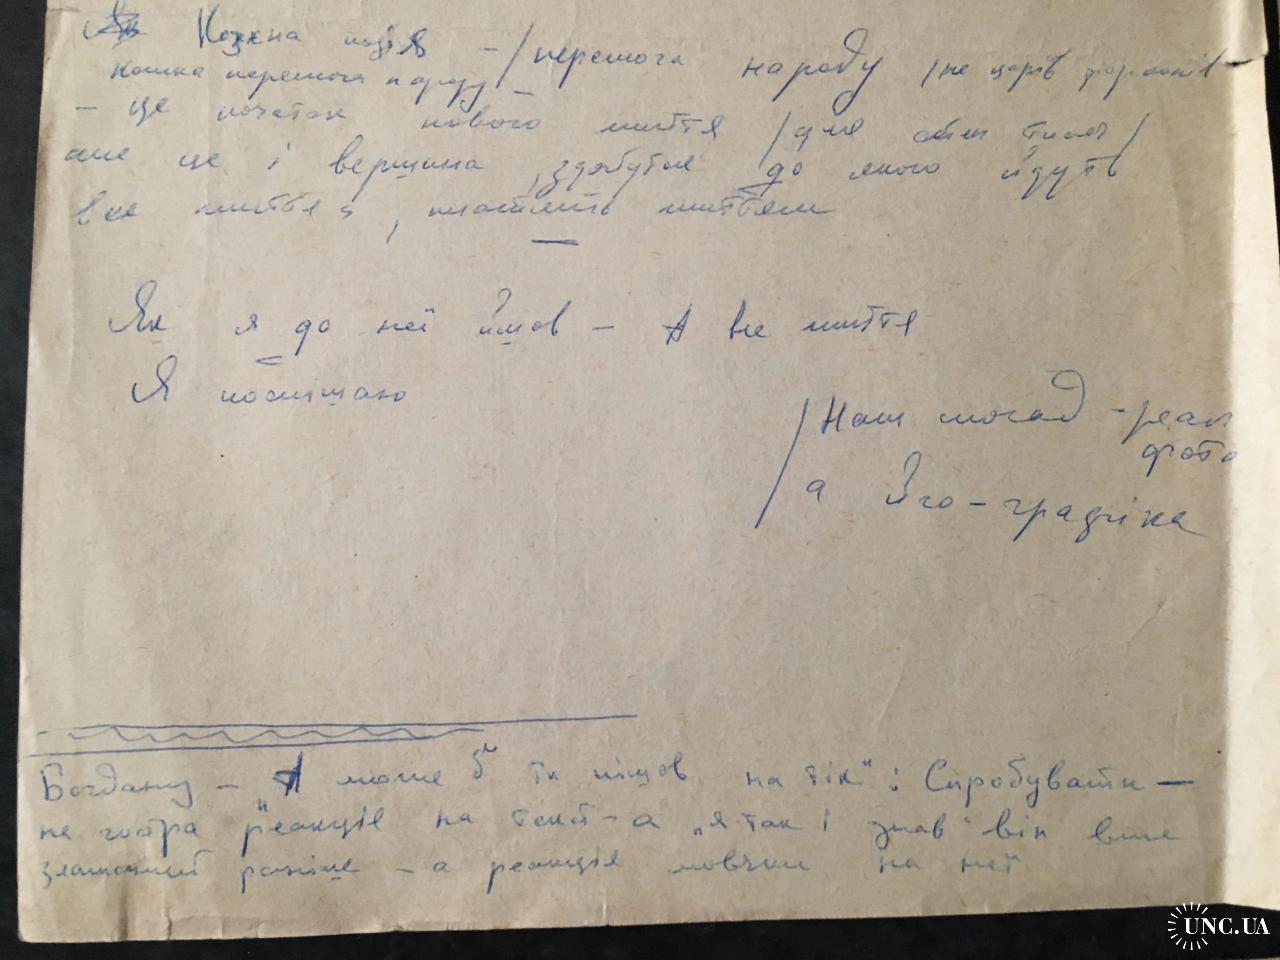 Кожна подія – / перемога народу /не царів фараонів
кожна перемога народу –
– це початок нового життя /для отих тисяч/
але це і вершина, здобуття до якого йдуть
все життя, платять життям
Як я до неї йшов – А все життя
Я поспішаю
/ Наш погляд – реал
фото
/ а його – графіка
Богдану – А може б ти пішов на тік": Спробувати –
не гостра "реакція на текст – а "я так і знав" він вже
зламаний раніше – а реакція мовчки на неї
UNC.UA